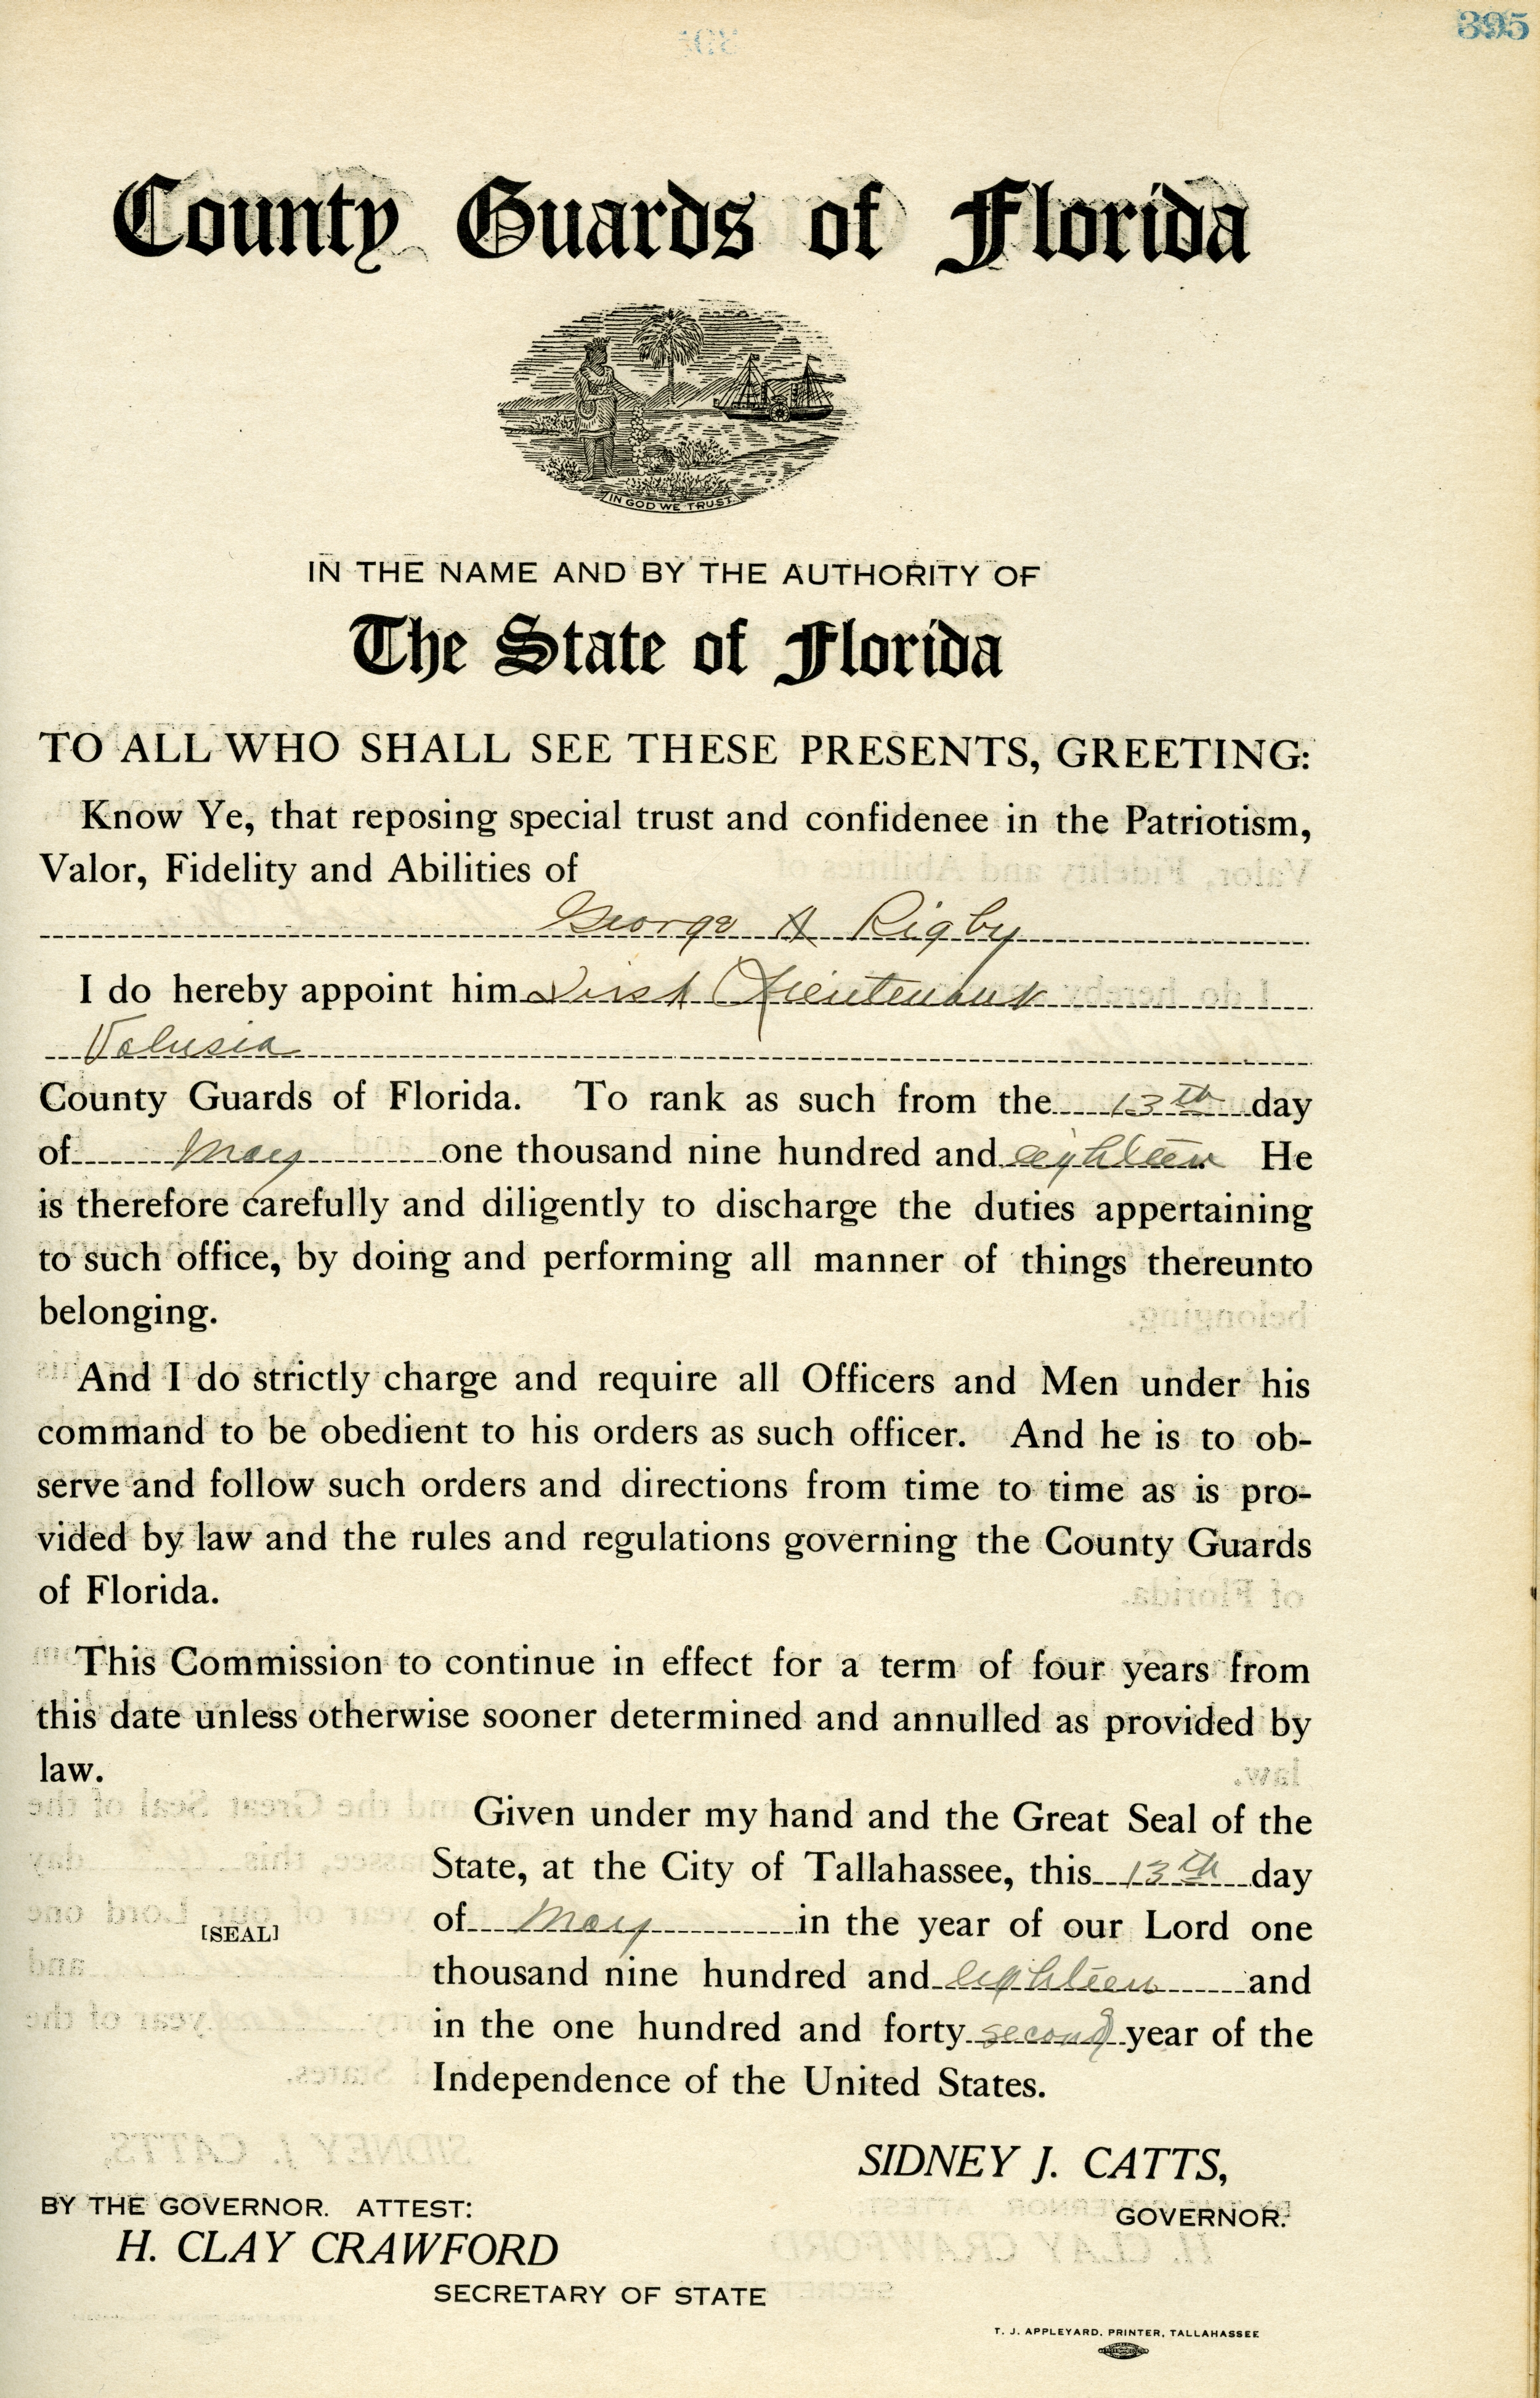 395
County Guards of Florida
IN GOD WE TRUST
IN THE NAME AND BY THE AUTHORITY OF
The State of Florida
TO ALL WHO SHALL SEE THESE PRESENTS, GREETING:
Know Ye, that reposing special trust and confidenee in the Patriotism,
Valor, Fidelity and Abilities of
George A Rigby
I do hereby appoint him First Lieutenant
Volusia
County Guards of Florida. To rank as such from the 13th day
of May one thousand nine hundred and eighteen He
is therefore carefully and diligently to discharge the duties appertaining
to such office, by doing and performing all manner of things thereunto
belonging.
And I do strictly charge and require all Officers and Men under his
command to be obedient to his orders as such officer. And he is to ob-
serve and follow such orders and directions from time to time as is pro-
vided by law and the rules and regulations governing the County Guards
of Florida.
This Commission to continue in effect for a term of four years from
this date unless otherwise sooner determined and annulled as provided by
law.
Given under my hand and the Great Seal of the
State, at the City of Tallahassee, this 13th day
of May in the year of our Lord one
[SEAL]
thousand nine hundred and eighteen and
in the one hundred and forty second year of the
Independence of the United States.
SIDNEY J. CATTS,
GOVERNOR.
BY THE GOVERNOR. ATTEST:
H. CLAY CRAWFORD
SECRETARY OF STATE
T. J. APPLEYARD, PRINTER, TALLAHASSEE